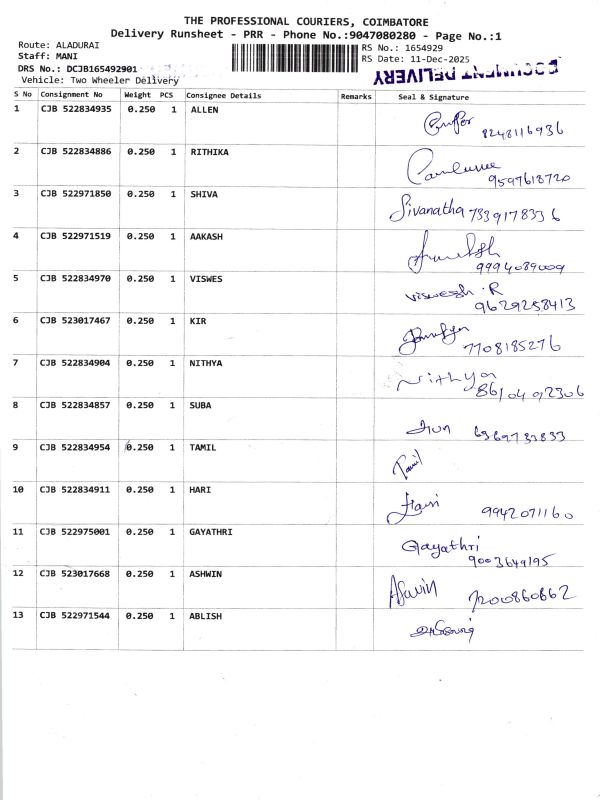 THE PROFESSIONAL COURIERS, COIMBATORE
Delivery Runsheet - PRR - Phone No.:9047080280 - Page No.:1
Route: ALADURAI
Staff: MANI
DRS No.: DCJB165492901
Vehicle: Two Wheeler Delivery
RS No.: 1654929
RS Date: 11-Dec-2025
DOCUMENT DELIVERY
S No Consignment No Weight PCS Consignee Details Remarks Seal & Signature
1 CJB 522834935 0.250 1 ALLEN
8248116936
2 CJB 522834886 0.250 1 RITHIKA
9597618720
3 CJB 522971850 0.250 1 SHIVA
Sivanatha 7339178336
4 CJB 522971519 0.250 1 AAKASH
9994089009
5 CJB 522834970 0.250 1 VISWES
viswesh.R
9629258413
6 CJB 523017467 0.250 1 KIR
7708185276
7 CJB 522834904 0.250 1 NITHYA
Nithya
8610492306
8 CJB 522834857 0.250 1 SUBA
6369733833
9 CJB 522834954 0.250 1 TAMIL
Tamil
10 CJB 522834911 0.250 1 HARI
Hari 9942071160
11 CJB 522975001 0.250 1 GAYATHRI
Gayathri
9003649195
12 CJB 523017668 0.250 1 ASHWIN
7200860662
13 CJB 522971544 0.250 1 ABLISH